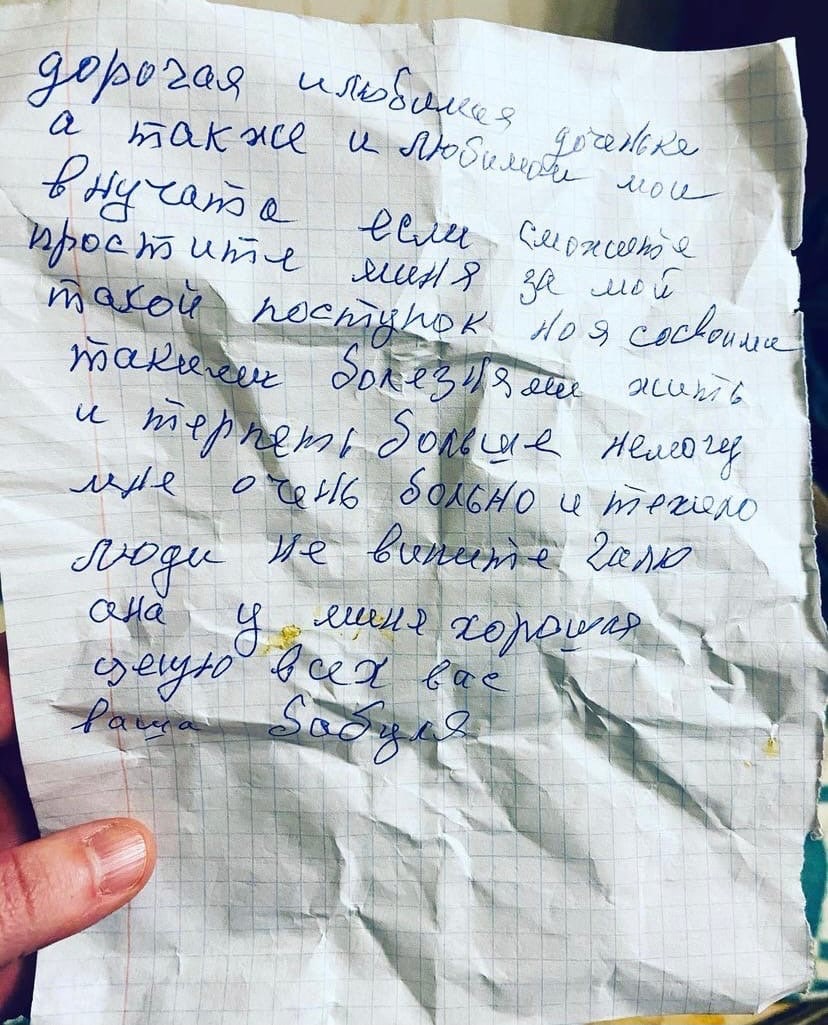 дорогая илюбимая доченька
а также и любимои мои
внучата если сможите
простите миня за мой
такой поступок ноя сосвоими
такими болезнями жить
и терпеть больше немогу
мне очень больно и тежело
люди не вините Галю
она у миня хорошая
целую всех вас
ваша бабуля